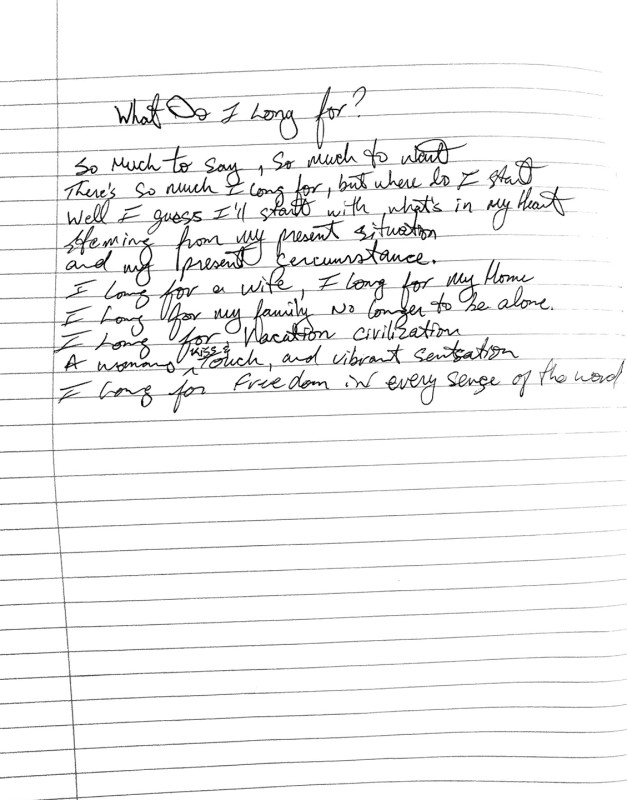 What Do I Long for?
So Much to say, So much to want
There's so much I long for, but where do I start
Well I guess I'll start with what's in my Heart
steming from my present situation
and my present cercumstance.
I long for a wife, I long for my Home
I long for my family No longer to be alone.
I long for Vacation civilization
A womans kiss & Touch, and vibrant sentsation
I long for Freedom in every sense of the word